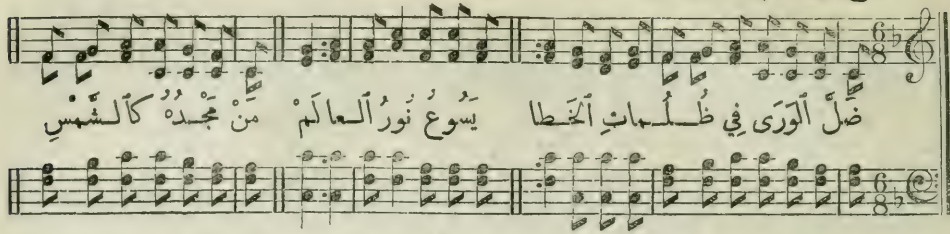 ضَلَّ ٱلوَرَى فِي ظُلُـمـاتِ ٱلخَـطا يَسُوعُ نُورُ ٱلـعـالَمْ مَنْ مَجْـدُهُ كَٱلـشَّمْسِ